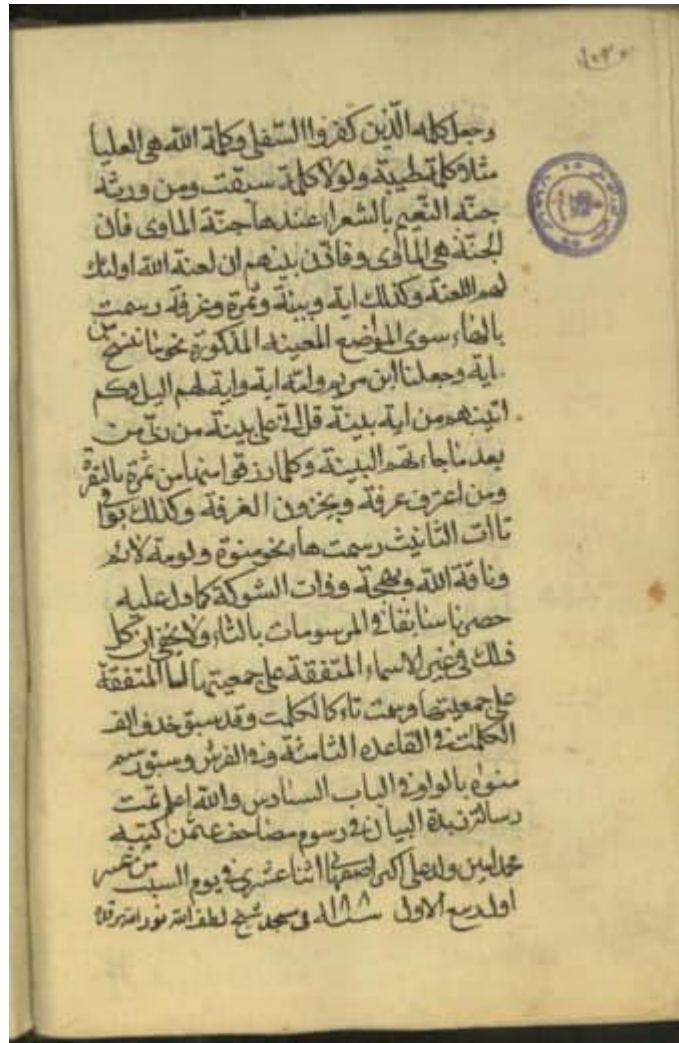 وجعل كلمه الّذين كفروا السّفلى وكلمة الله هى العليا
مثلا كلمة طيبة ولولا كلمة سبقت ومن ورثه
جنّه النّعيم بالشعراء عندها جنّة الماوى فان
الجنّة هى الماوى وفاذن بينهم ان لعنة الله اولئك
لهم اللعنة وكذلك اية وبينة وثمرة وغرفة رسمت
بالهاء سوى المواضع المعينه المذكورة نحو ما ننسخ من
اية وجعلنا ابن مريم وامّه اية واية لهم اليل وكم
اتينهم من اية بينة قل انّى على بينة من ربّى من
بعد ما جاءتهم البينة وكلما رزقوا منها من ثمرة بالبقرة
ومن اغترف غرفة ويجزون الغرفة وكذلك بواقى
تاات التانيث رسمت هاء نحو منوة ولومة لائم
وناقة الله وبهجة وذات الشوكة كما دل عليه
حصرنا سابقا فى المرسومات بالتاء ولا يخفى ان كل
ذلك فى غير الاسماء المتفقة على جمعيتها اما المتفقة
على جمعيتها رسمت تاء كالكلمت وقد سبق حذف الف
الكلمت فى القاعده الثامنة وفى الفرش وسبق رسم
منوة بالواو فى الباب السادس والله اعلم تمت
رسالة زبدة البيان فى رسوم مصاحف عثمن كتبه
محمد امين ولد على اكبر اصفهانى اثنا عشرى فى يوم السبت
اول ربيع الاول سنة فى مسجد شيخ لطف الله نور الله مرقده